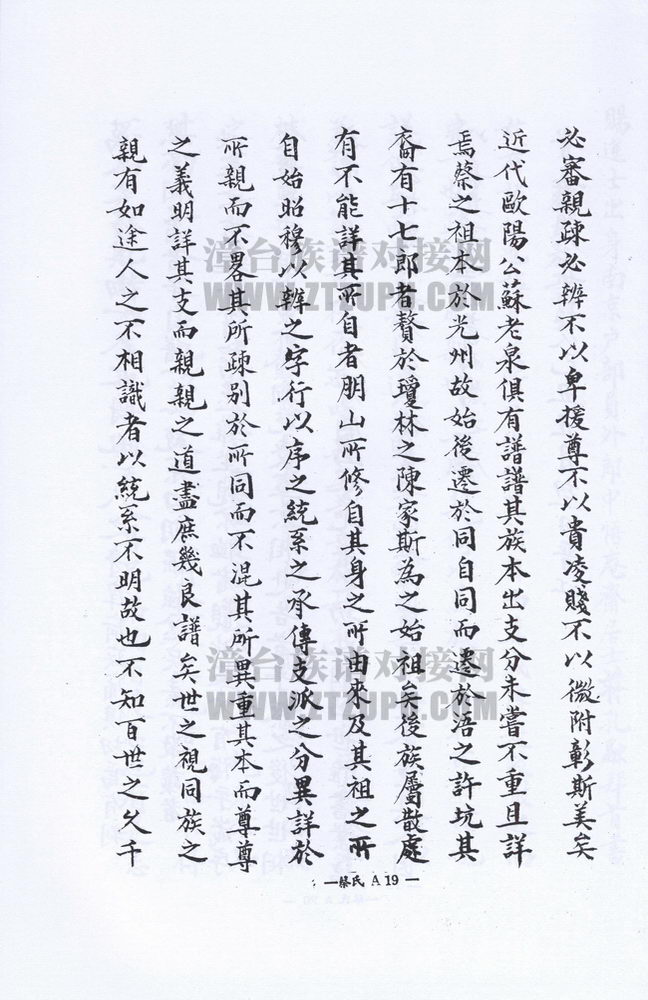 必審親疎必辨不以卑援尊不以貴凌賤不以微附彰斯美矣
近代歐陽公蘇老泉俱有譜譜其族本出支分未嘗不重且詳
焉蔡之祖本於光州故始後遷於同自同而遷於浯之許坑其
裔有十七郎者贅於瓊林之陳家斯為之始祖矣後族屬散處
有不能詳其所自者朋山所修自其身之所由來及其祖之所
自始昭穆以辨之字行以序之統系之承傳支派之分異詳於
所親而不畧其所疎别於所同而不混其所異重其本而尊尊
之義明詳其支而親親之道盡庶幾良譜矣世之視同族之
親有如途人之不相識者以統系不明故也不知百世之久千
漳台族谱对接网
WWW.ZTZUPU.COM
漳台族谱对接网
WWW.ZTZUPU.COM
—蔡氏 A 19 —